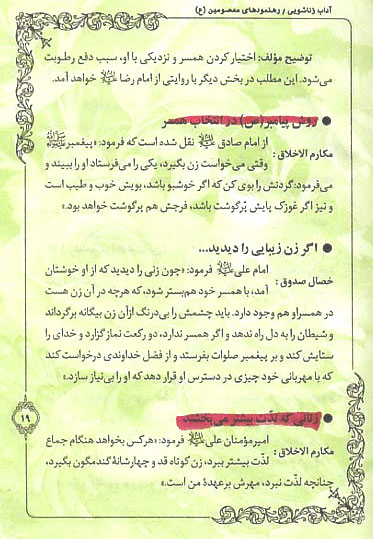 آداب زناشویی / رهنمودهای معصومین (ع)
توضیح مؤلف: اختیار کردن همسر و نزدیکی با او، سبب دفع رطوبت
می‌شود. این مطلب در بخش دیگر با روایتی از امام رضا ﷷ خواهد آمد.
● روش پیامبر(ص) در انتخاب همسر
مکارم الاخلاق: از امام صادق نقل شده است که فرمود: «پیغمبر ﷺ
وقتی می‌خواست زن بگیرد، یکی را می‌فرستاد او را ببیند و
می‌فرمود: گردنش را بوی کن که اگر خوشبو باشد، بویش خوب و طیب است
و نیز اگر غوزک پایش پُرگوشت باشد، فرجش هم پرگوشت خواهد بود.»
● اگر زن زیبایی را دیدید...
خصال صدوق: امام علی فرمود: «چون زنی را دیدید که از او خوشتان
آمد، با همسر خود هم‌بستر شود، که هرچه در آن زن هست
در همسر او هم وجود دارد. باید چشمش را بی‌درنگ از آن زن بیگانه برگرداند
و شیطان را به دل راه ندهد و اگر همسر ندارد، دو رکعت نماز گزارد و خدای را
ستایش کند و بر پیغمبر صلوات بفرستد و از فضل خداوندی درخواست کند
که با مهربانی خود چیزی در دسترس او قرار دهد که او را بی‌نیاز سازد.»
● زنانی که لذّت بیشتر می‌بخشند
مکارم الاخلاق: امیرمؤمنان علی فرمود: «هرکس بخواهد هنگام جماع
لذّت بیشتر ببرد، زن کوتاه قد و چهارشانهٔ گندمگون بگیرد،
چنانچه لذّت نبرد، مهرش برعهدهٔ من است.»
۱۹